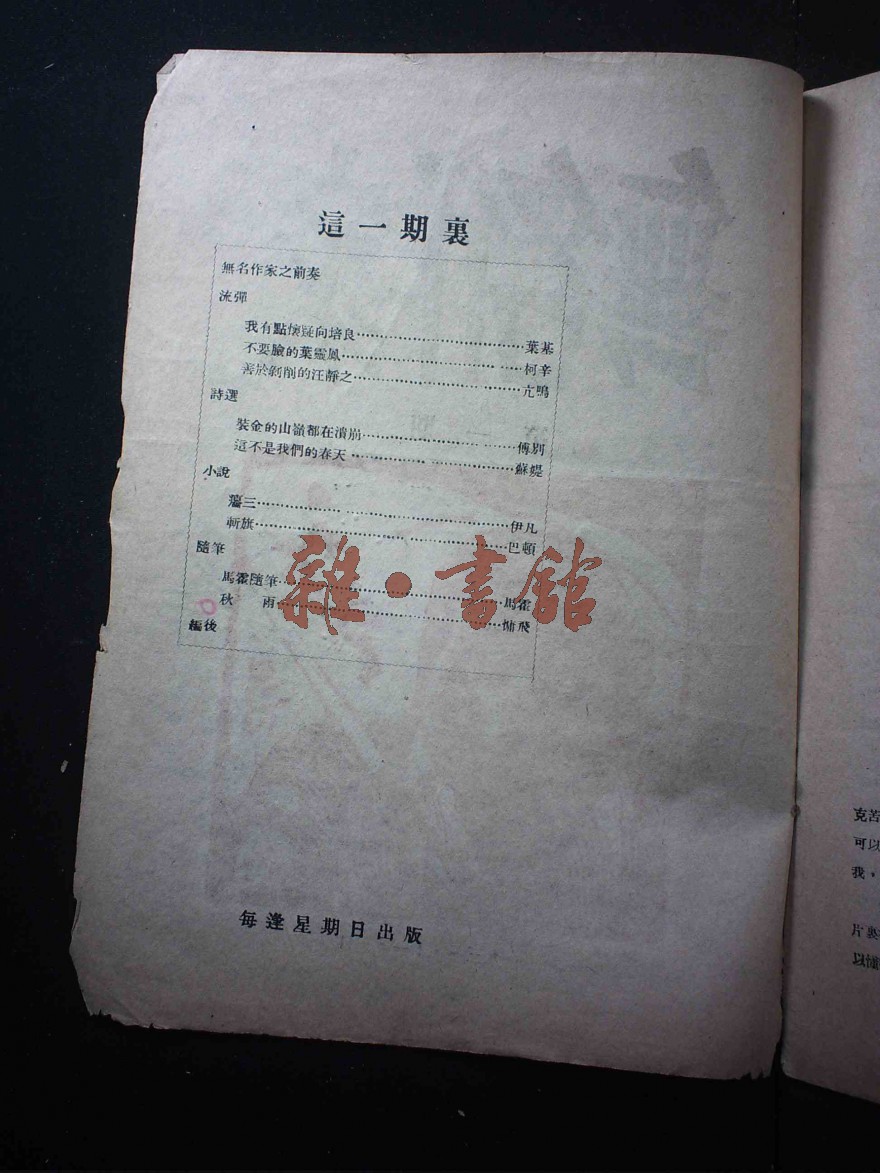 這一期裏
無名作家之前奏
流彈
我有點懷疑向培良⋯⋯⋯⋯⋯⋯⋯⋯葉基
不要臉的葉靈鳳⋯⋯⋯⋯⋯⋯⋯⋯柯辛
善於剝削的汪靜之⋯⋯⋯⋯⋯⋯⋯⋯亢鳴
詩選
裝金的山嶺都在潰崩⋯⋯⋯⋯⋯⋯⋯⋯傅別
這不是我們的春天⋯⋯⋯⋯⋯⋯⋯⋯蘇媞
小說
癟三⋯⋯⋯⋯⋯⋯⋯⋯伊凡
斬旗⋯⋯⋯⋯⋯⋯⋯⋯巴頓
隨筆
馬霍隨筆⋯⋯⋯⋯⋯⋯⋯⋯馬霍
秋雨⋯⋯⋯⋯⋯⋯⋯⋯慵飛
編後
雜·書館
每逢星期日出版
克苦
可以
我，
片
以